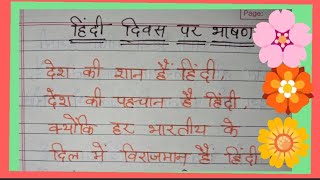 Page:
हिंदी दिवस पर भाषण
देश की शान हैं हिंदी,
देश की पहचान है हिंदी,
क्योंकि हर भारतीय के
दिल में विराजमान हैं हिंदी